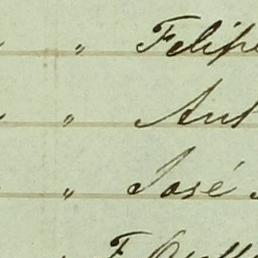 " Felipe
" Ant
" José